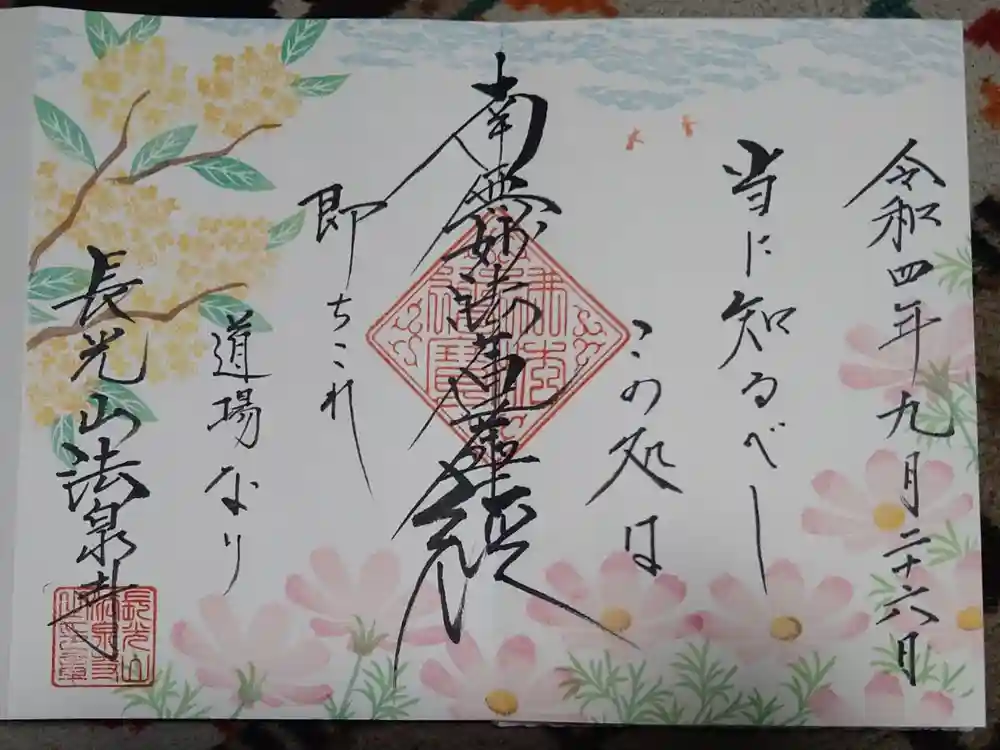 令和四年九月二十六日
当に知るべし
この処は
南無妙法蓮華経
即ちこれ
道場なり
長光山法泉寺
長光山
法泉寺